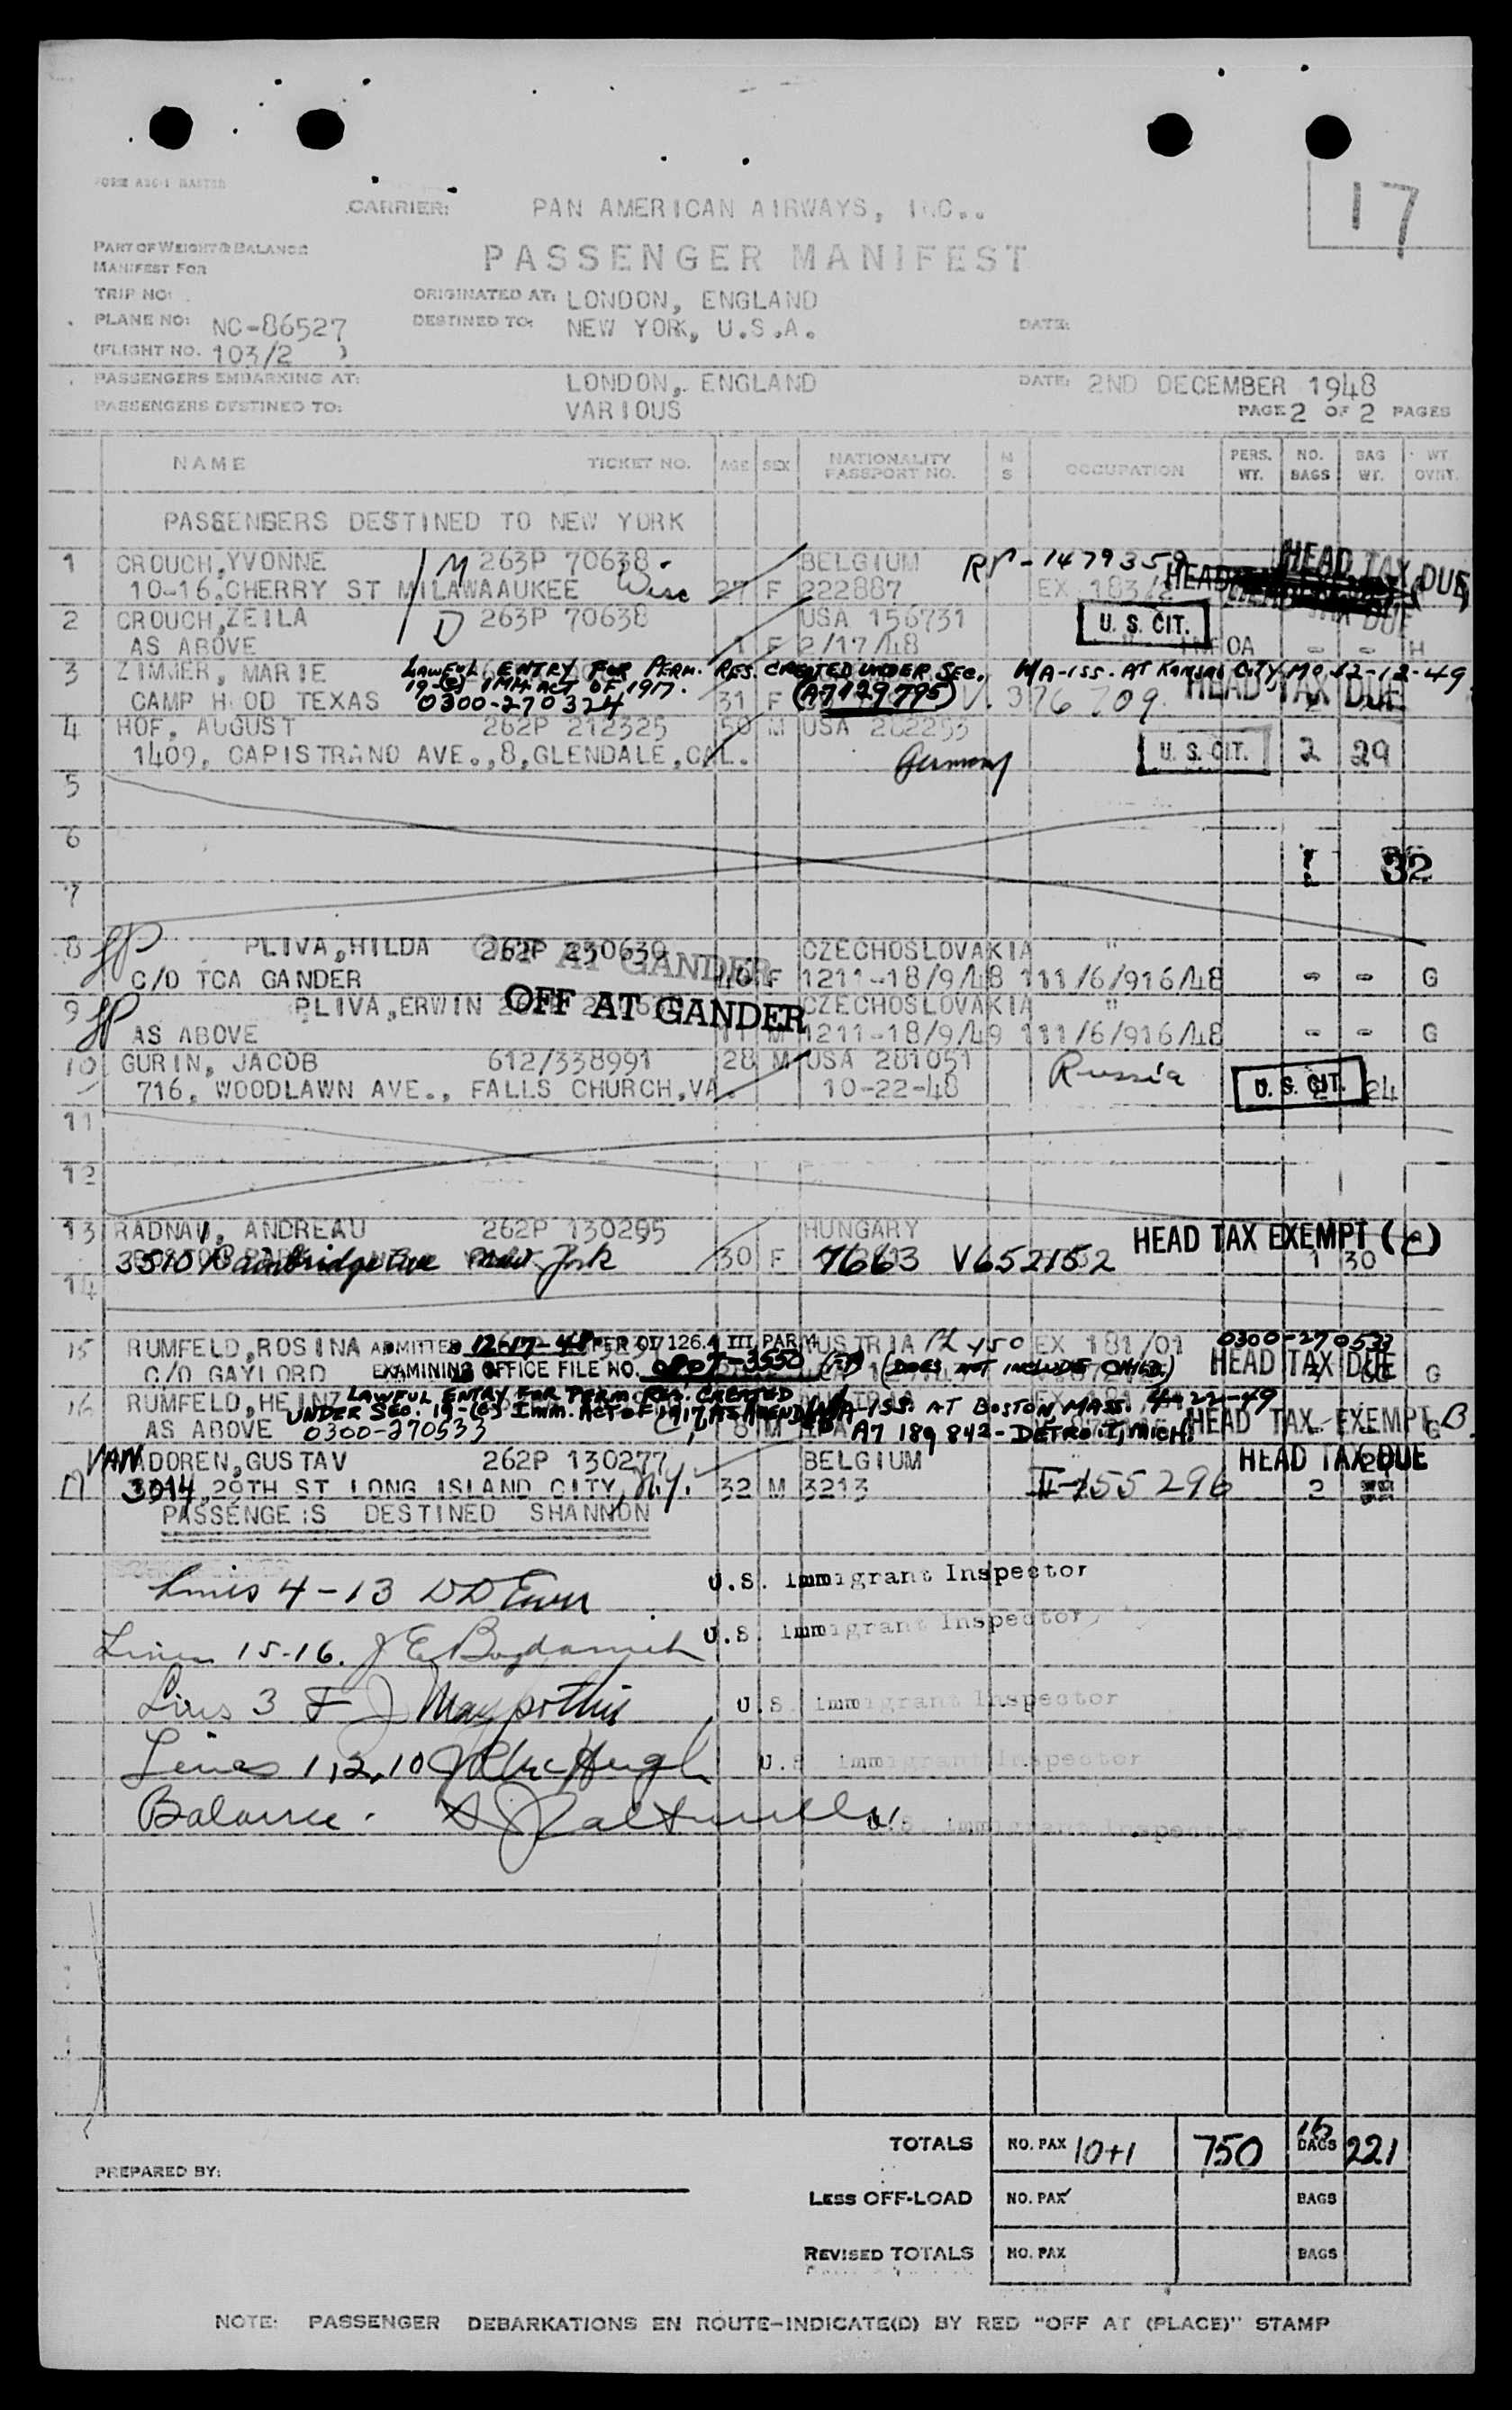 FORM ASC-1 MASTER
17
CARRIER: PAN AMERICAN AIRWAYS, INC..
PART OF WEIGHT & BALANCE
MANIFEST FOR
PASSENGER MANIFEST
TRIP NO:
ORIGINATED AT: LONDON, ENGLAND
PLANE NO: NC-86527
DESTINED TO: NEW YORK, U.S.A.
DATE:
(FLIGHT NO. 103/2 )
PASSENGERS EMBARKING AT: LONDON, ENGLAND DATE: 2ND DECEMBER 1948
PASSENGERS DESTINED TO: VARIOUS PAGE 2 OF 2 PAGES
NAME TICKET NO. AGE SEX NATIONALITY PASSPORT NO. M S OCCUPATION PERS. WT. NO. BAGS BAG WT. WT. OVHT.
PASSENGERS DESTINED TO NEW YORK
1 CROUCH, YVONNE M 263P 70638 BELGIUM RP-1479359 HEAD TAX DUE
10-16, CHERRY ST MILAWAAUKEE Wisc 27 F 222887 EX 183/2
2 CROUCH, ZEILA D 263P 70638 USA 156731 U. S. CIT.
AS ABOVE 1 F 2/17/48 - - H
3 ZIMMER, MARIE LAWFUL ENTRY FOR PERM. RES. CREATED UNDER SEC. N/A-ISS. AT KANSAS CITY, MO 12-12-49
19-(C) IMM. ACT OF 1917. (A7929795) HEAD TAX DUE
CAMP HOOD TEXAS 0300-270324 31 F V. 376709
4 HOF, AUGUST 262P 212325 50 M USA 262253
1409, CAPISTRANO AVE., 8, GLENDALE, CAL. Germany U. S. CIT. 2 29
5
6
32
7
8 PLIVA, HILDA 262P 230639 CZECHOSLOVAKIA "
OFF AT GANDER
C/O TCA GANDER 40 F 1211-18/9/48 111/6/916/48 - - G
9 PLIVA, ERWIN OFF AT GANDER CZECHOSLOVAKIA "
AS ABOVE 11 M 1211-18/9/49 111/6/916/48 - - G
10 GURIN, JACOB 612/338991 28 M USA 281051 Russia
716, WOODLAWN AVE., FALLS CHURCH, VA. 10-22-48 U. S. CIT. 24
11
12
13 RADNAI, ANDREAU 262P 130295 HUNGARY HEAD TAX EXEMPT (a)
3510 Bainbridge Ave New York 30 F 76613 V652152 1 30
14
15 RUMFELD, ROSINA ADMITTED 12-17-48 PER OI 126.1 III, PAR 4 AUSTRIA EX 181/01 0300-270533
C/O GAYLORD EXAMINING OFFICE FILE NO. 0907-3550 (DOES NOT INCLUDE CHILD.) HEAD TAX DUE G
16 RUMFELD, HEINZ LAWFUL ENTRY FOR PERM. RES. CREATED
UNDER SEC. 19-(C) IMM. ACT OF 1917, AS AMENDED N/A ISS. AT BOSTON MASS. 4-22-49
AS ABOVE 0300-270533 8 M A7 189 842-DETROIT, MICH. HEAD TAX EXEMPT B G
VAN DOREN, GUSTAV 262P 130277 BELGIUM HEAD TAX DUE
3014, 29TH ST LONG ISLAND CITY, N.Y. 32 M 3213 II-155296 2
PASSENGERS DESTINED SHANNON
Lines 4-13 U.S. Immigrant Inspector
Lines 15-16. U.S. Immigrant Inspector
Lines 3 U.S. Immigrant Inspector
Lines 1,2,10 U.S. Immigrant Inspector
Balance. U.S. Immigrant Inspector
TOTALS NO. PAX 10+1 750 BAGS 16 221
PREPARED BY:
LESS OFF-LOAD NO. PAX BAGS
REVISED TOTALS NO. PAX BAGS
NOTE: PASSENGER DEBARKATIONS EN ROUTE-INDICATE(D) BY RED "OFF AT (PLACE)" STAMP